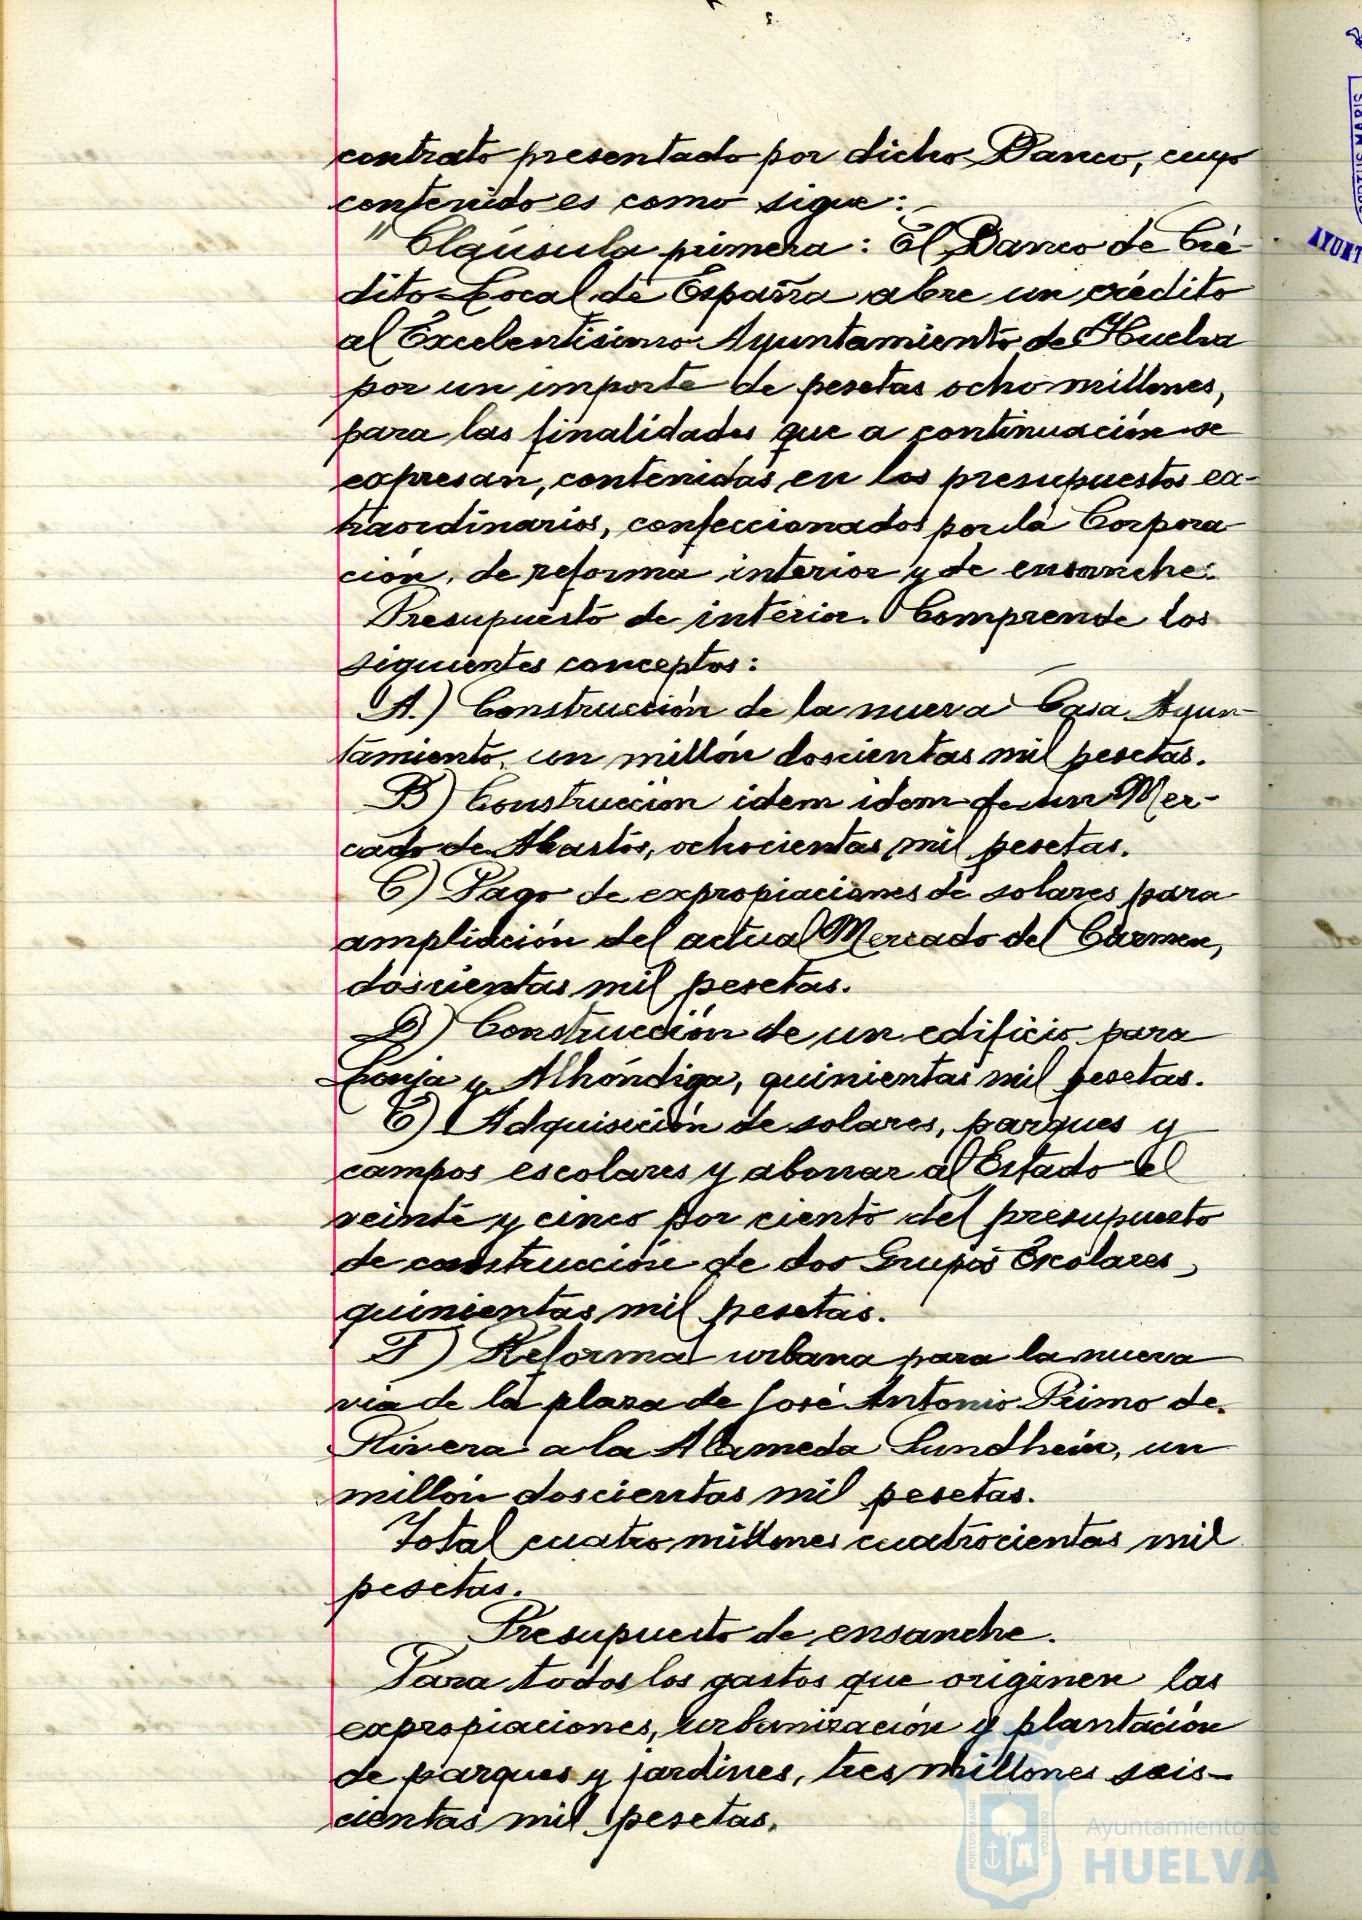 contrato presentado por dicho Banco, cuyo
contenido es como sigue:
"Claúsula primera: El Banco de Cré-
dito Local de España abre un crédito
al Excelentisimo Ayuntamiento de Huelva
por un importe de pesetas ocho millones,
para las finalidades que a continuación se
expresan, contenidas en los presupuestos ex-
traordinarios, confeccionados por la Corpora
ción, de reforma interior y de ensanche.
Presupuesto de interior. Comprende los
siguientes conceptos:
A.) Construcción de la nueva Casa Ayun-
tamiento, un millón doscientas mil pesetas.
B) Construcción idem idem de un Mer-
cado de Abastos, ochocientas mil pesetas.
C) Pago de expropiaciones de solares para
ampliación del actual Mercado del Carmen,
doscientas mil pesetas.
D) Construcción de un edificio para
Lonja y Alhóndiga, quinientas mil pesetas.
E) Adquisición de solares, parques y
campos escolares y abonar al Estado el
veinte y cinco por ciento del presupuesto
de construcción de dos Grupos Escolares,
quinientas mil pesetas.
F) Reforma urbana para la nueva
via de la plaza de José Antonio Primo de
Rivera a la Alameda Sundhein, un
millón doscientas mil pesetas.
Total cuatro millones cuatrocientas mil
pesetas.
Presupuesto de ensanche.
Para todos los gastos que originen las
expropiaciones, urbanización y plantación
de parques y jardines, tres millones seis-
cientas mil pesetas.
PORTUS MARIS
AYUNT
Ayuntamiento de
HUELVA